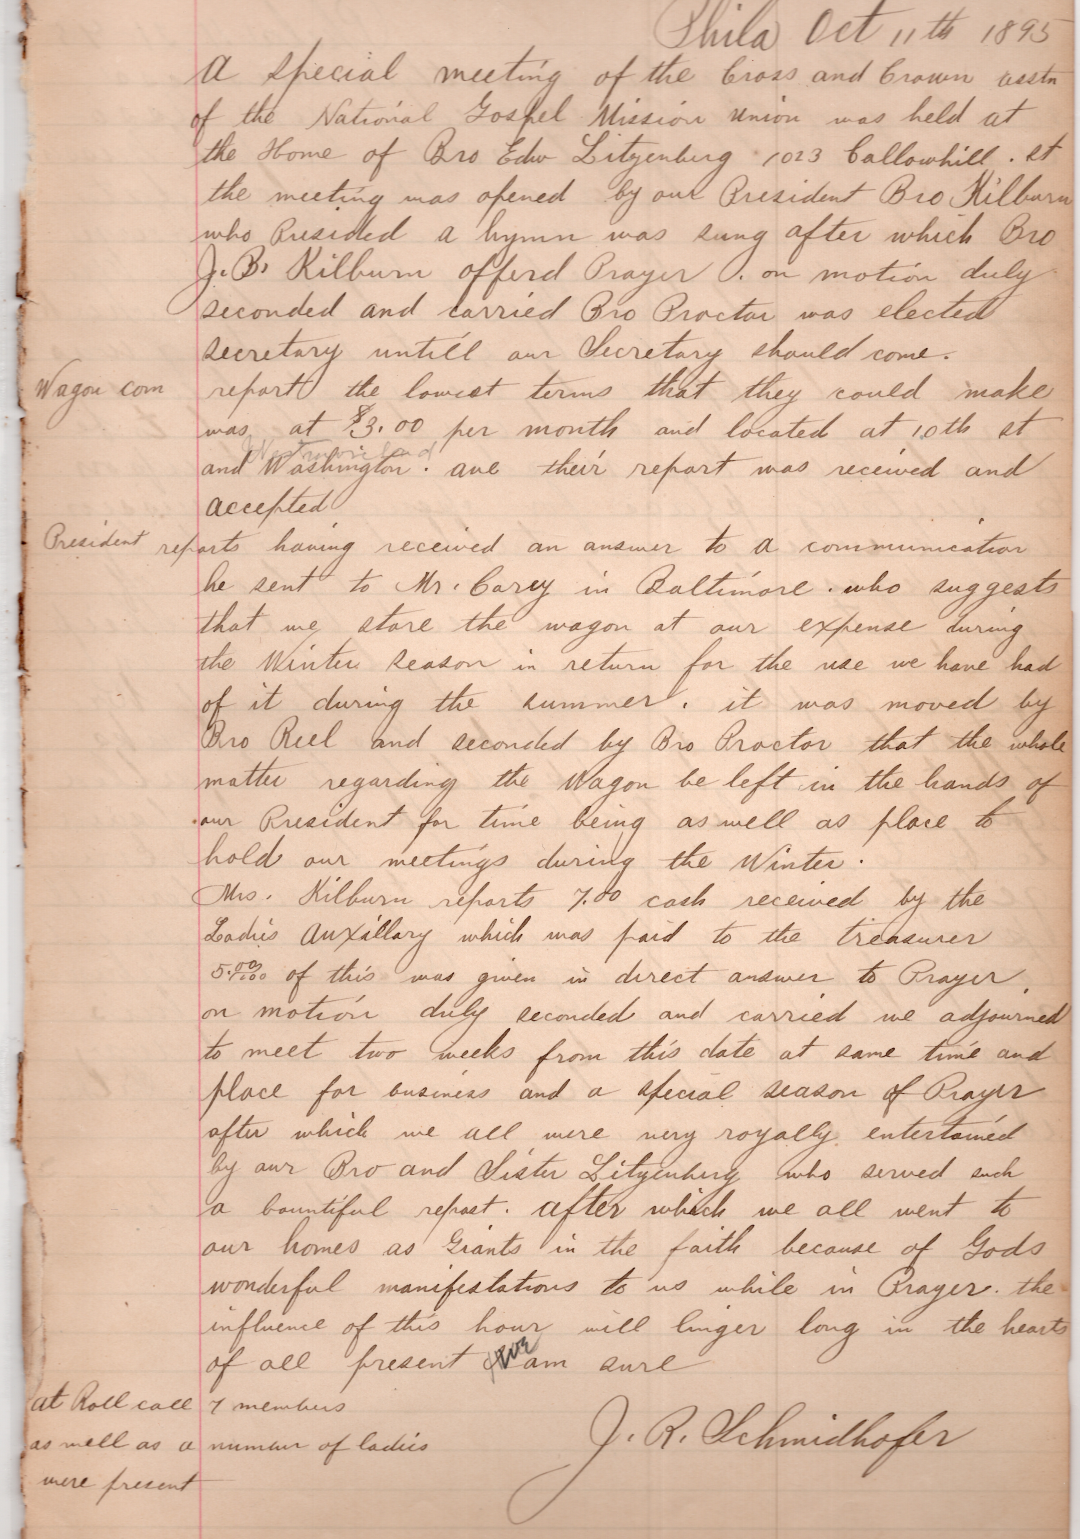 Phila Oct 11th 1895
A special meeting of the Cross and Crown asstn
of the National Gospel Mission Union was held at
the Home of Bro Edw Litzenberg 1023 Callowhill . st
the meeting was opened by our President Bro Kilburn
who Presided a hymn was sung after which Bro
J. B. Kilburn offerd Prayer . on motion duly
seconded and carried Bro Proctor was elected
secretary untill our Secretary should come.
Wagon com report the lowest terms that they could make
was at $3.00 per month and located at 10th st
and Washington . ave their report was received and
accepted
President reports having received an answer to a communication
he sent to Mr. Carey in Baltimore . who suggests
that we store the wagon at our expense during
the Winter season in return for the use we have had
of it during the summer . it was moved by
Bro Reel and seconded by Bro Proctor that the whole
matter regarding the Wagon be left in the hands of
our President for time being as well as place to
hold our meetings during the Winter .
Mrs. Kilburn reports 7.00 cash received by the
Ladies Auxillary which was paid to the treasurer
5.00 of this was given in direct answer to Prayer .
on motion duly seconded and carried we adjourned
to meet two weeks from this date at same time and
place for business and a special season of Prayer
after which we all were very royally entertained
by our Bro and Sister Litzenberg who served such
a bountiful repast . after which we all went to
our homes as Giants in the faith because of Gods
wonderful manifestations to us while in Prayer . the
influence of this hour will linger long in the hearts
of all present am sure
at Roll call 7 members
as well as a number of ladies
were present
J. R. Schmidhofer